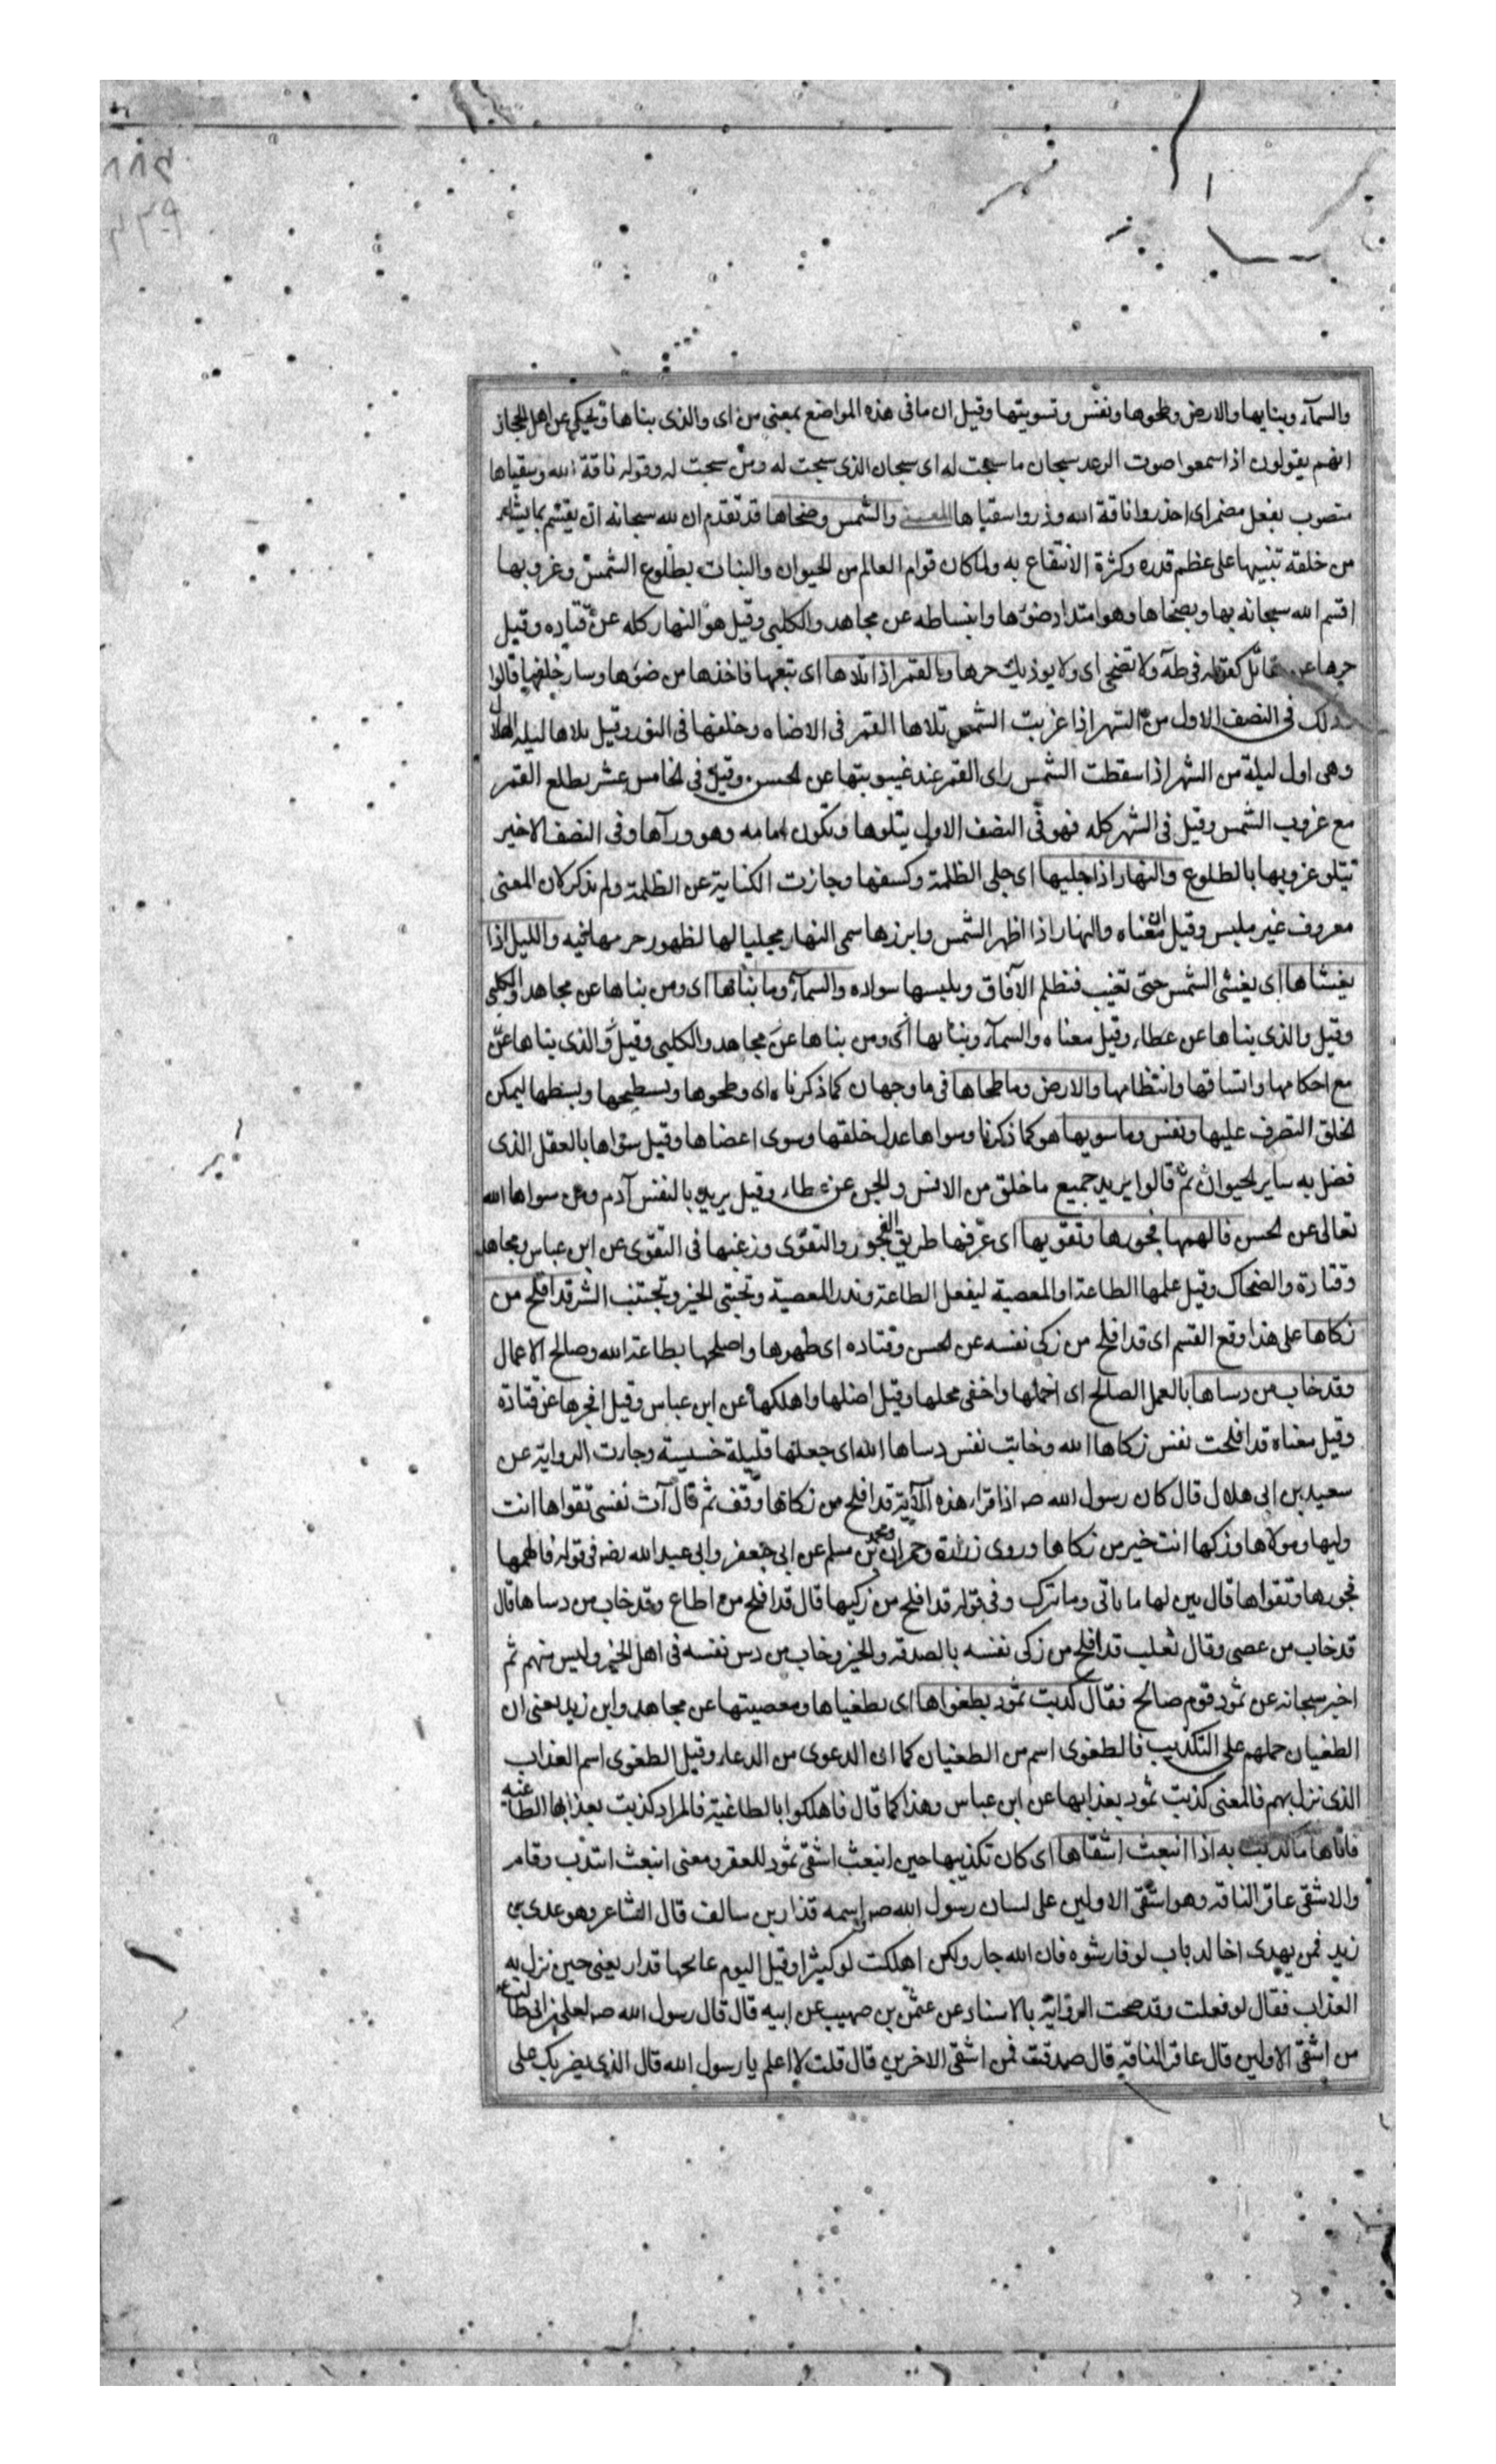 والسمآء وبنايها والارض وطحوها ونفس وتسويتها وقيل ان ما فى هذه المواضع بمعنى من اى والذى بناها ويحكى عن اهل الحجاز
انهم يقولون اذا سمعوا صوت الرعد سبحان ما سبحت له اى سبحان الذى سبحت له ومن سبحت له وقوله ناقة الله وسقياها
منصوب بفعل مضمر اى احذروا ناقة الله وذروا سقياها المعنى والشمس وضحاها قد تقدم ان لله سبحانه ان يقسم بما يشاء
من خلقه تنبيها على عظم قدره وكثرة الانتفاع به ولما كان قوام العالم من الحيوان والنبات بطلوع الشمس وغروبها
اقسم الله سبحانه بها وبضحاها وهو امتداد ضوءها وانبساطه عن مجاهد والكلبى وقيل هو النهار كله عن قتاده وقيل
حرها عن مقاتل كقوله فى طه ولا تضحى اى ولا يوذيك حرها وبالقمر اذا تلاها اى تبعها فاخذ ها من ضوءها وسار خلفها قالوا
وذلك فى النصف الاول من الشهر اذا غربت الشمس تلاها القمر فى الاضاه وخلفها فى النور وقيل تلاها ليله الهلال
وهى اول ليلة من الشهر اذا سقطت الشمس راى القمر عند غيبوبتها عن الحسن وقيل فى الخامس عشر يطلع القمر
مع غروب الشمس وقيل فى الشهر كله فهو فى النصف الاول يتلوها وتكون امامه وهو ورآها وفى النصف الاخير
تتلو غروبها بالطلوع والنهار اذا جليها اى جلى الظلمة وكسفها وجازت الكناية عن الظلمة ولم تذكر لان المعنى
معروف غير ملبس وقيل ان معناه والنهار اذا اظهر الشمس وابرزها سمى النهار مجليا لها لظهور جرمها فيه والليل اذا
يغشاها اى يغشى الشمس حتى تغيب فتظلم الآفاق ويلبسها سواده والسمآء وما بناها اى ومن بناها عن مجاهد والكلبى
وقيل والذى بناها عن عطاء وقيل معناه والسمآء وبنائها اى ومن بناها عن مجاهد والكلبى وقيل والذى بناها عن
مع احكامها واتساقها وانتظامها والارض وما طحاها فى ما وجهان كما ذكرناه اى وطحوها وتسطيحها وبسطها ليمكن
الخلق التصرف عليها ونفس وما سويها هو كما ذكرنا وسواها عدل خلقها وسوى اعضاها وقيل سواها بالعقل الذى
فضل به ساير الحيوان ثم قالوا يريد جميع ما خلق من الانس والجن عن عطاء وقيل يريد بالنفس آدم ومن سواها الله
تعالى عن الحسن فالهمها فجورها وتقويها اى عرفها طريق الفجور والتقوى وزغبها فى التقوى عن ابن عباس ومجاهد
وقتارة والضحاك وقيل علمها الطاعة او المعصية ليفعل الطاعة وتذر المعصية وتجتبى الخير وتجتنب الشر قد افلح من
زكاها على هذا وقع القسم اى قد افلح من زكى نفسه عن الحسن وقتاده اى طهرها واصلحها بطاعة الله وصالح الاعمال
وقد خاب من دساها بالعمل الصالح اى اخملها واخفى محلها وقيل اضلها واهلكها عن ابن عباس وقيل افجرها عن قتادة
وقيل معناه قد افلحت نفس زكاها الله وخابت نفس دساها الله اى جعلها قليلة خسيسة وجارت الرواية عن
سعيد بن ابى هلال قال كان رسول الله صه اذا قراء هذه الآية قد افلح من زكاها وقف ثم قال آت نفسى تقواها انت
وليها ومولاها وزكها انت خير من زكاها وروى زرارة وحمران ومحمد بن مسلم عن ابى جعفر وابى عبد الله فى قوله فالهمها
فجورها وتقواها قال بين لها ما ياتى وما ترك وفى قوله قد افلح من زكيها قال قد افلح من اطاع وقد خاب من دساها قال
قد خاب من عصى وقال ثعلب قد افلح من زكى نفسه بالصدقه والخير وخاب من دس نفسه فى اهل الخير وليس منهم ثم
اخبر سبحانه عن ثمود قوم صالح فقال كذبت ثمود بطغواها اى بطغياها ومعصيتها عن مجاهد وابن زيد يعنى ان
الطغيان حملهم على التكذيب فالطغوى اسم من الطغيان كما ان الدعوى من الدعاء وقيل الطغوى اسم العذاب
الذى نزل بهم فالمعنى كذبت ثمود بعذابها عن ابن عباس وهذا كما قال فاهلكوا بالطاغية فالمراد كذبت بعذابها الطاغيه
فاتاها ما كذبت به اذا انبعث اشقاها اى كان تكذيبها حين انبعث اشقى ثمود للعقر ومعنى انبعث انتدب وقام
والاشقى عاقر الناقه وهو اشقى الاولين على لسان رسول الله صه واسمه قذار بن سالف قال الشاعر وهو عدى بن
زيد فمن يهدى اخا لذباب لو فارشوه فان الله جار ولكن اهلكت لو كثيرا وقيل اليوم عالجها قدار يعنى حين نزل به
العذاب فقال لو فعلت وقد صحت الرواية بالاسناد عن عثمن بن صهيب عن ابيه قال قال رسول الله صه لعلى بن ابى طالب
من اشقى الاولين قال عاقر الناقه قال صدقت فمن اشقى الاخرين قال قلت لا اعلم يا رسول الله قال الذى يضربك على